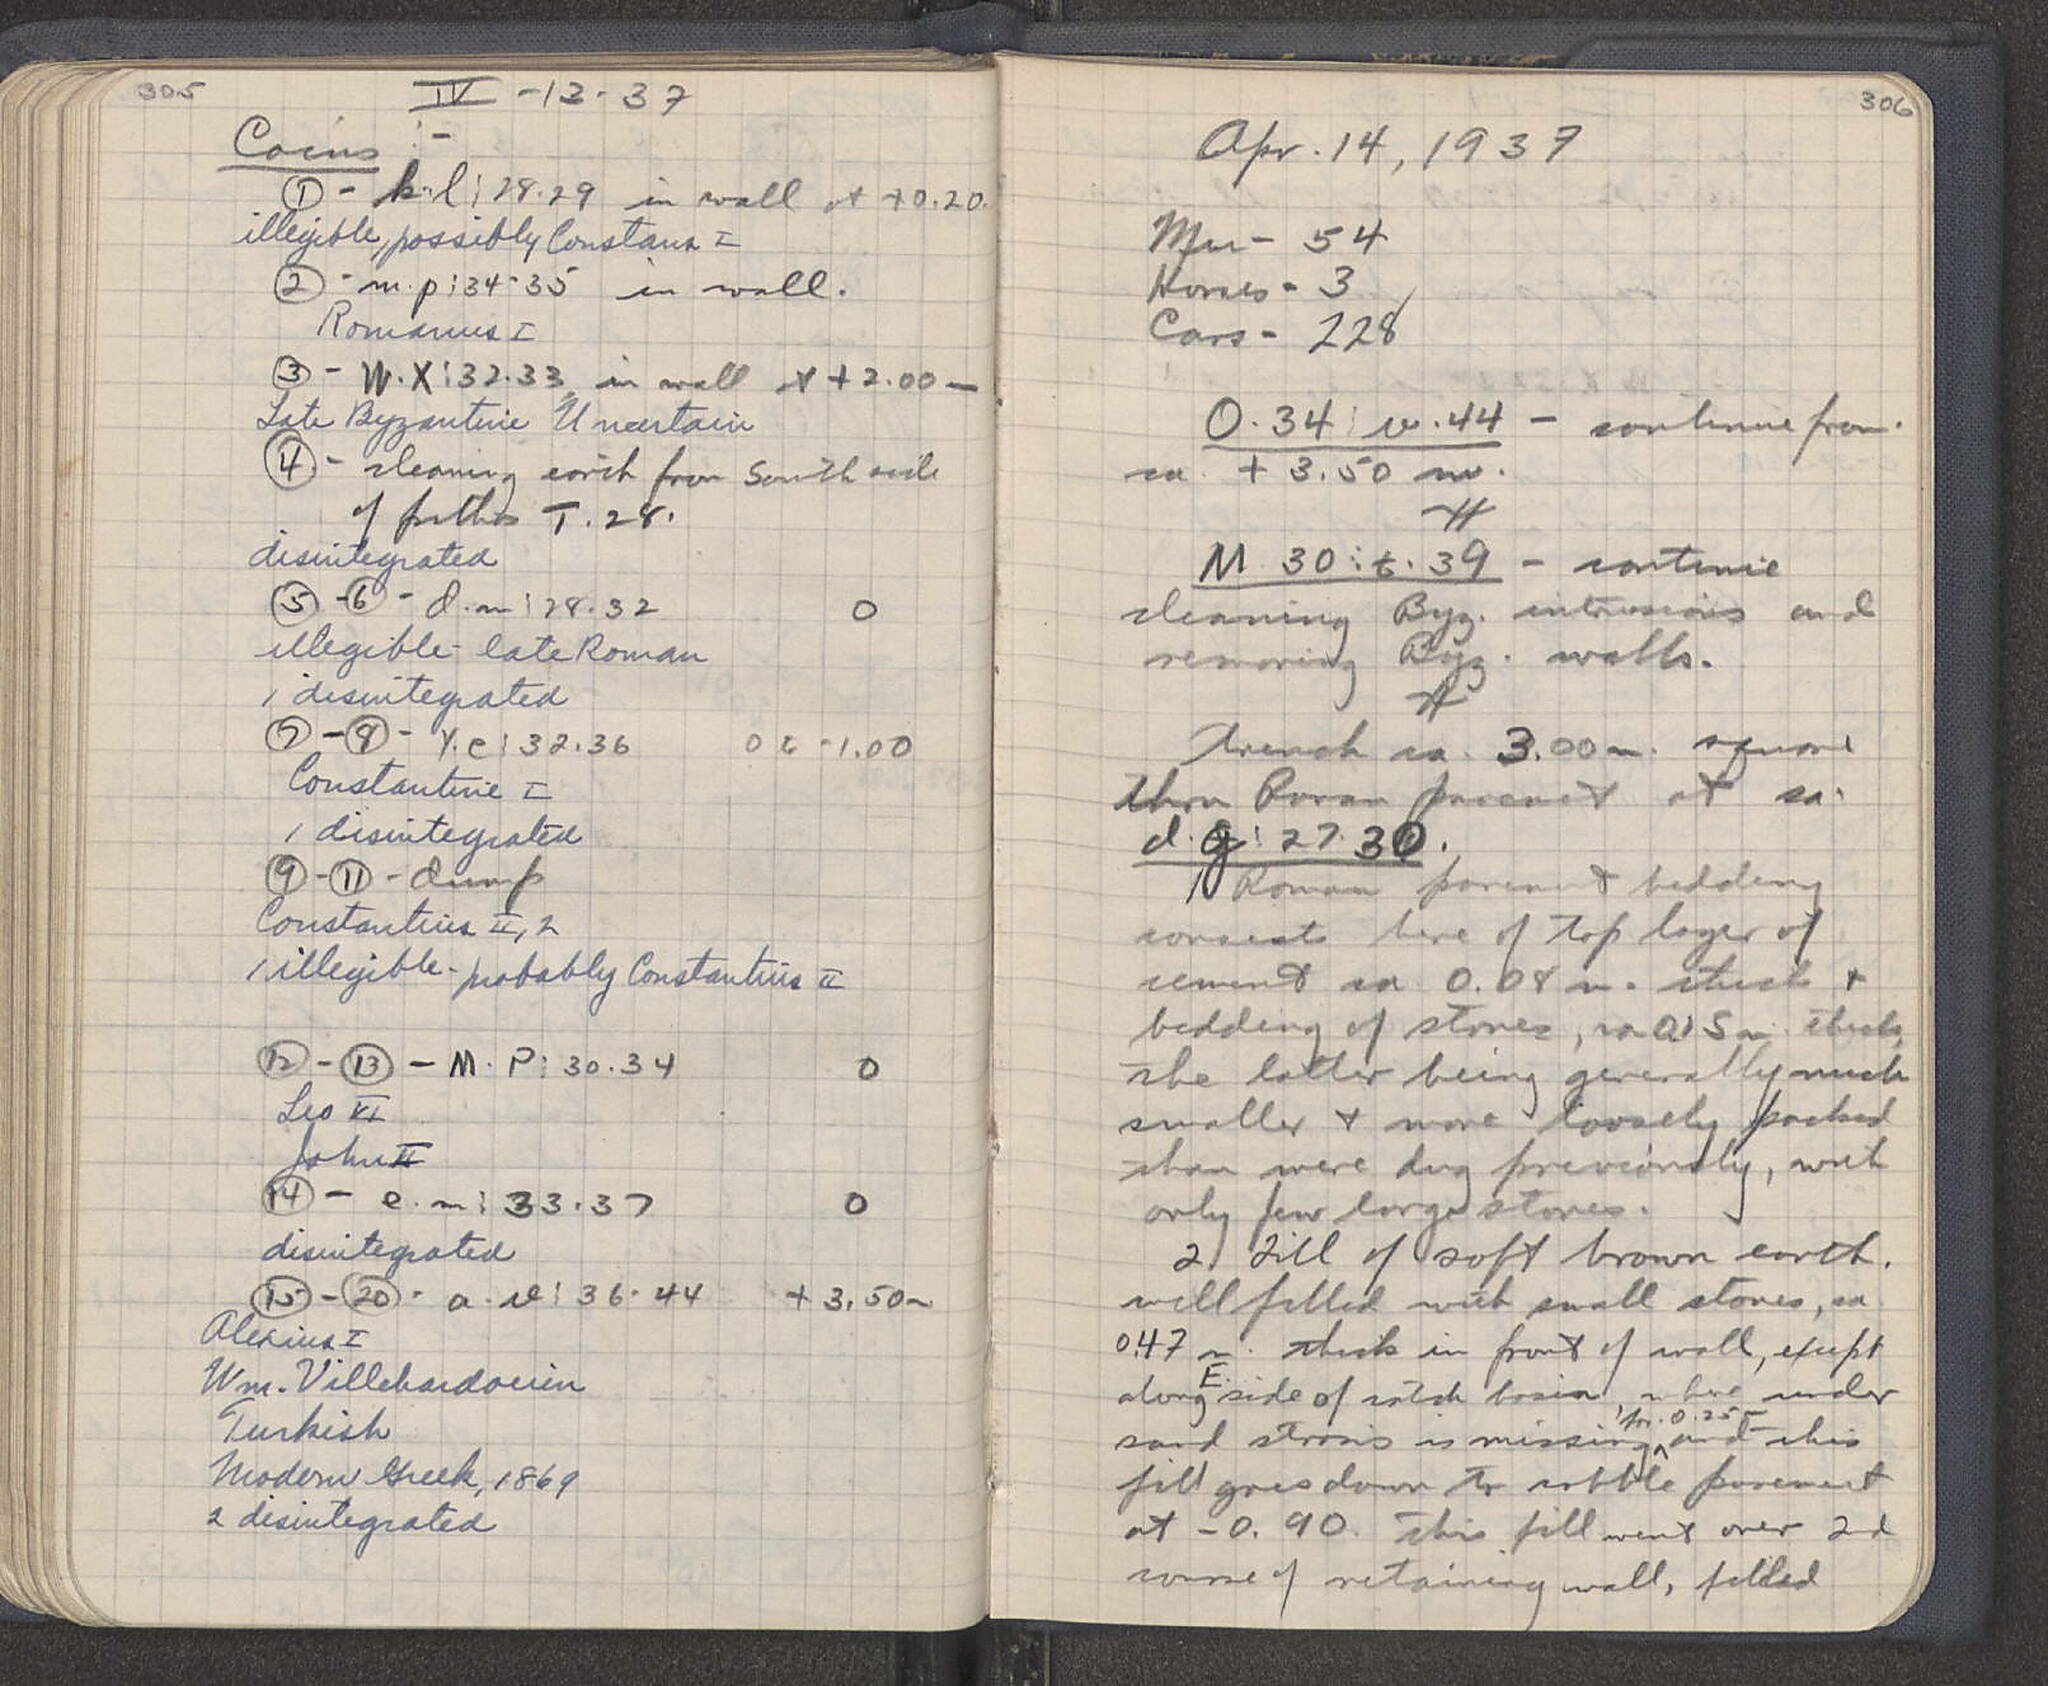 305
IV - 13 - 37
Coins :-
① - k·l : 28·29 in wall at +0.20.
illegible, possibly Constans I
② - m·p : 34-35 in wall.
Romanus I
③ - W·X : 32·33, in wall at +2.00 m
Late Byzantine Uncertain
④ - cleaning earth from South side
of pithos T. 28.
disintegrated
⑤ - ⑥ - d·m : 28·32 0
illegible - late Roman
1 disintegrated
⑦ - ⑧ - Y·c : 32·36 0 to -1.00
Constantine I
1 disintegrated
⑨ - ⑪ - dump
Constantius II, 2
1 illegible - probably Constantius II
⑫ - ⑬ - M·P : 30·34 0
Leo VI
John II
⑭ - e·m : 33·37 0
disintegrated
⑮ - ⑳ - a·v : 36·44 +3.50 m
Alexius I
Wm. Villehardouin
Turkish
Modern Greek, 1869
2 disintegrated
306
Apr. 14, 1937
Men - 54
Horses - 3
Cars - 228
O·34 : v·44 - continue from
ca. +3.50 m.
M 30 : t·39 - continue
cleaning Byz. intrusions and
removing Byz. walls.
Trench ca. 3.00 m. square
thru Roman pavement at ca.
d·g : 27·30.
1) Roman pavement bedding
consists here of top layer of
cement ca 0.08 m. thick +
bedding of stones, ca 0.15 m. thick,
the latter being generally much
smaller + more loosely packed
than were dug previously, with
only few large stones.
2) Fill of soft brown earth.
well filled with small stones, ca
0.47 m. thick in front of wall, except
along E. side of catch basin, where under
sand strosis is missing, for 0.25 m and this
fill goes down to cobble pavement
at -0.90. This fill went over 2nd
course of retaining wall, filled